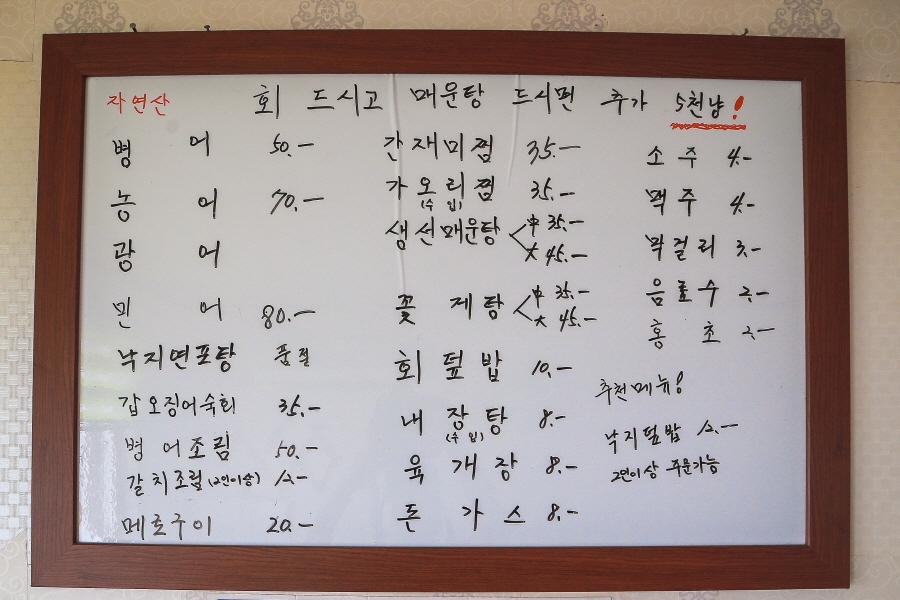 자연산 회 드시고 매운탕 드시면 추가 5천냥!
병어 50.-
농어 70.-
광어
민어 80.-
낙지연포탕 품절
갑오징어숙회 35.-
병어조림 50.-
갈치조림(2인이상) 12.-
메로구이 20.-
간재미찜 35.-
가오리찜 35.-
(수입)
생선매운탕 中 35.-
大 45.-
꽃게탕 中 35.-
大 45.-
회덮밥 10.-
내장탕 8.-
(수입)
육개장 8.-
돈가스 8.-
소주 4.-
맥주 4.-
막걸리 3.-
음료수 2.-
홍초 2.-
추천메뉴!
낙지덮밥 12.-
2인이상 주문가능